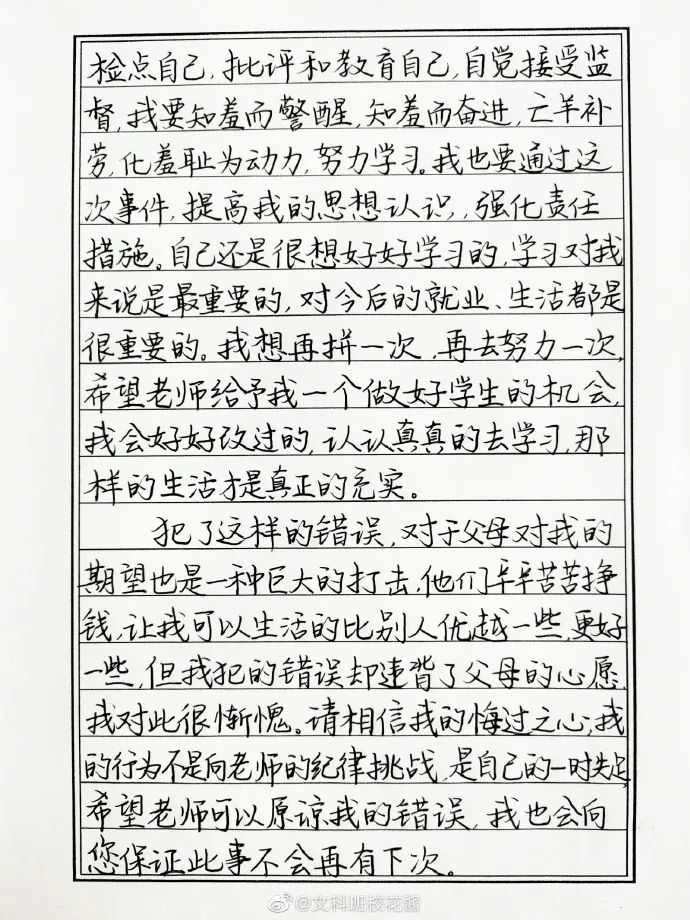 检点自己,批评和教育自己,自觉接受监
督,我要知羞而警醒,知羞而奋进,亡羊补
劳,化羞耻为动力,努力学习。我也要通过这
次事件,提高我的思想认识,,强化责任
措施。自己还是很想好好学习的,学习对我
来说是最重要的,对今后的就业、生活都是
很重要的。我想再拼一次,再去努力一次,
希望老师给予我一个做好学生的机会,
我会好好改过的,认认真真的去学习,那
样的生活才是真正的充实。
犯了这样的错误,对于父母对我的
期望也是一种巨大的打击,他们辛辛苦苦挣
钱,让我可以生活的比别人优越一些,更好
一些,但我犯的错误却违背了父母的心愿,
我对此很惭愧。请相信我的悔过之心;我
的行为不是向老师的纪律挑战,是自己的一时失足,
希望老师可以原谅我的错误,我也会向
您保证此事不会再有下次。
@文科班校花酱